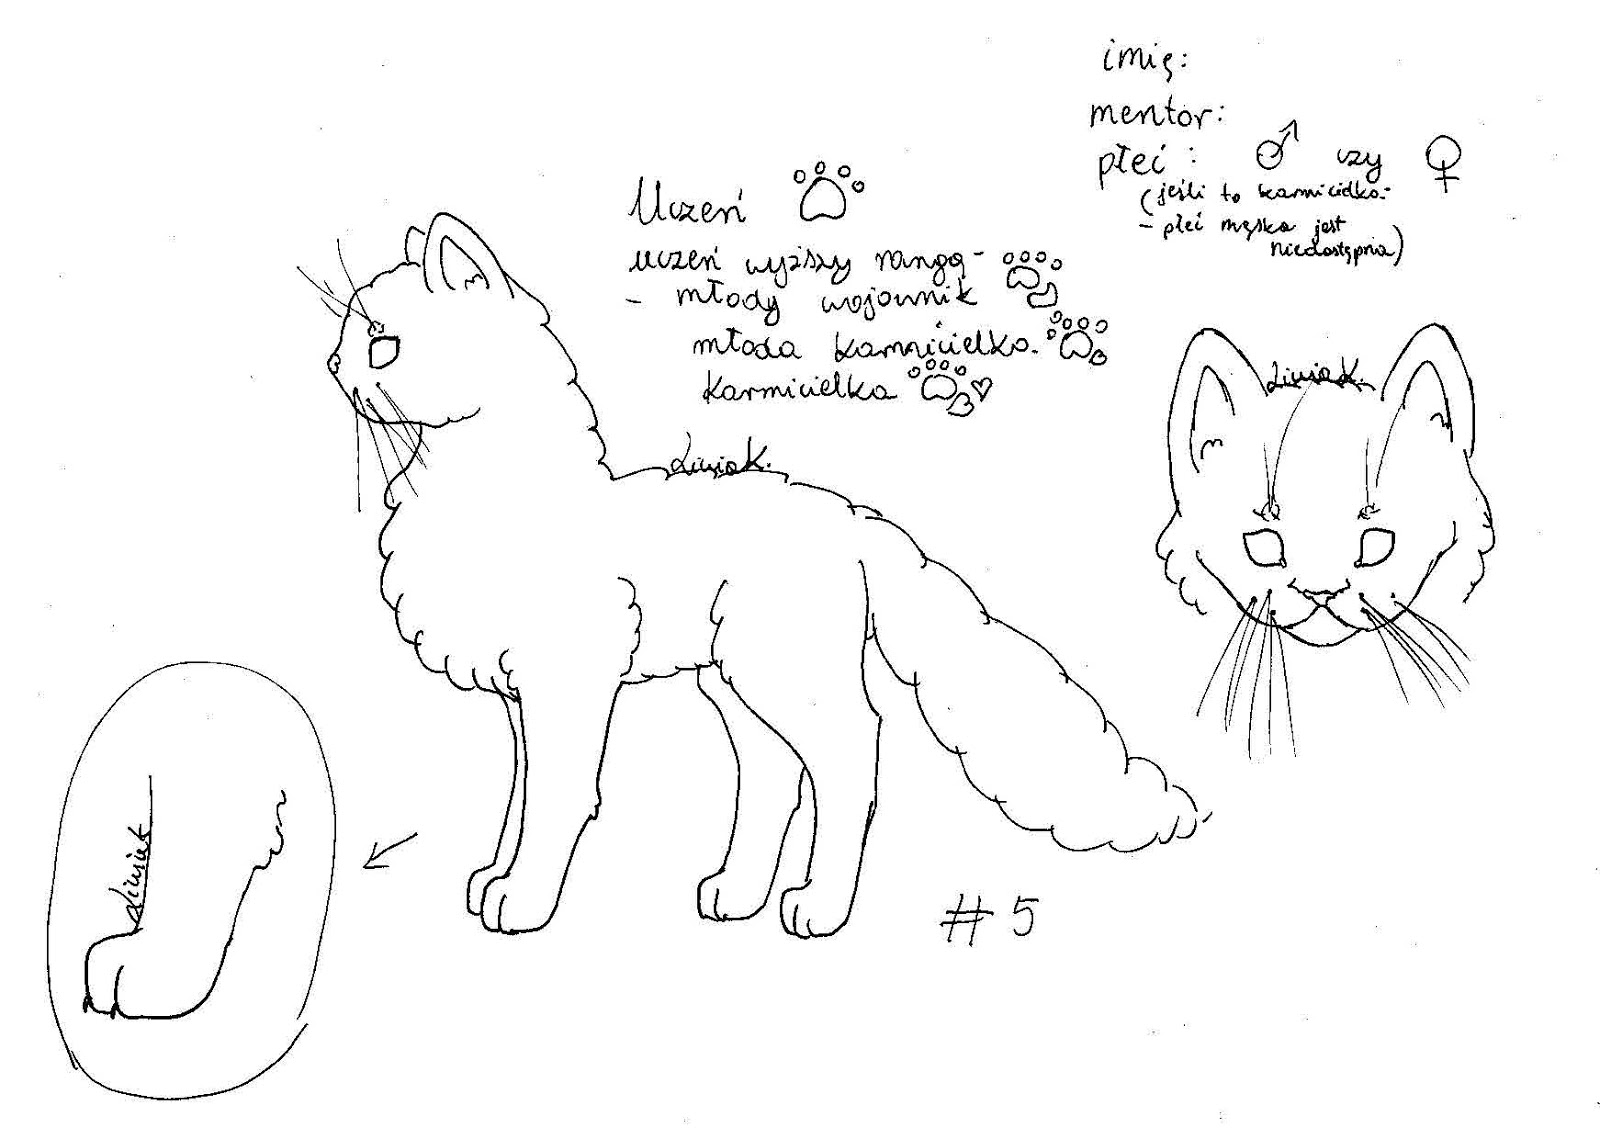 imię:
mentor:
płeć: ♂ czy ♀
(jeśli to karmicielka-
- płeć męska jest
niedostępna)
Uczeń
uczeń wyższy rangą-
- młody wojownik
młoda karmicielka.
karmicielka
LiwiaK.
LiwiaK.
#5